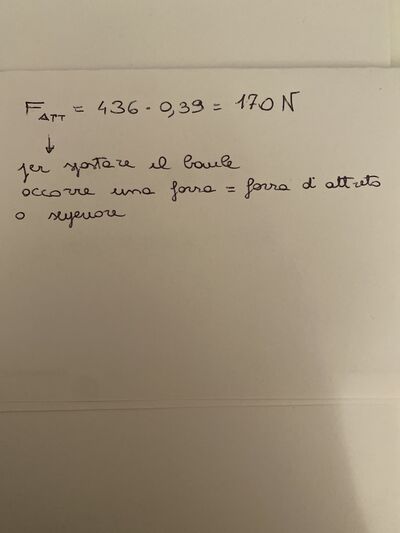 F ATT = 436 · 0,39 = 170 N
↓
per spostare il baule
occorre una forza = forza d'attrito
o superiore